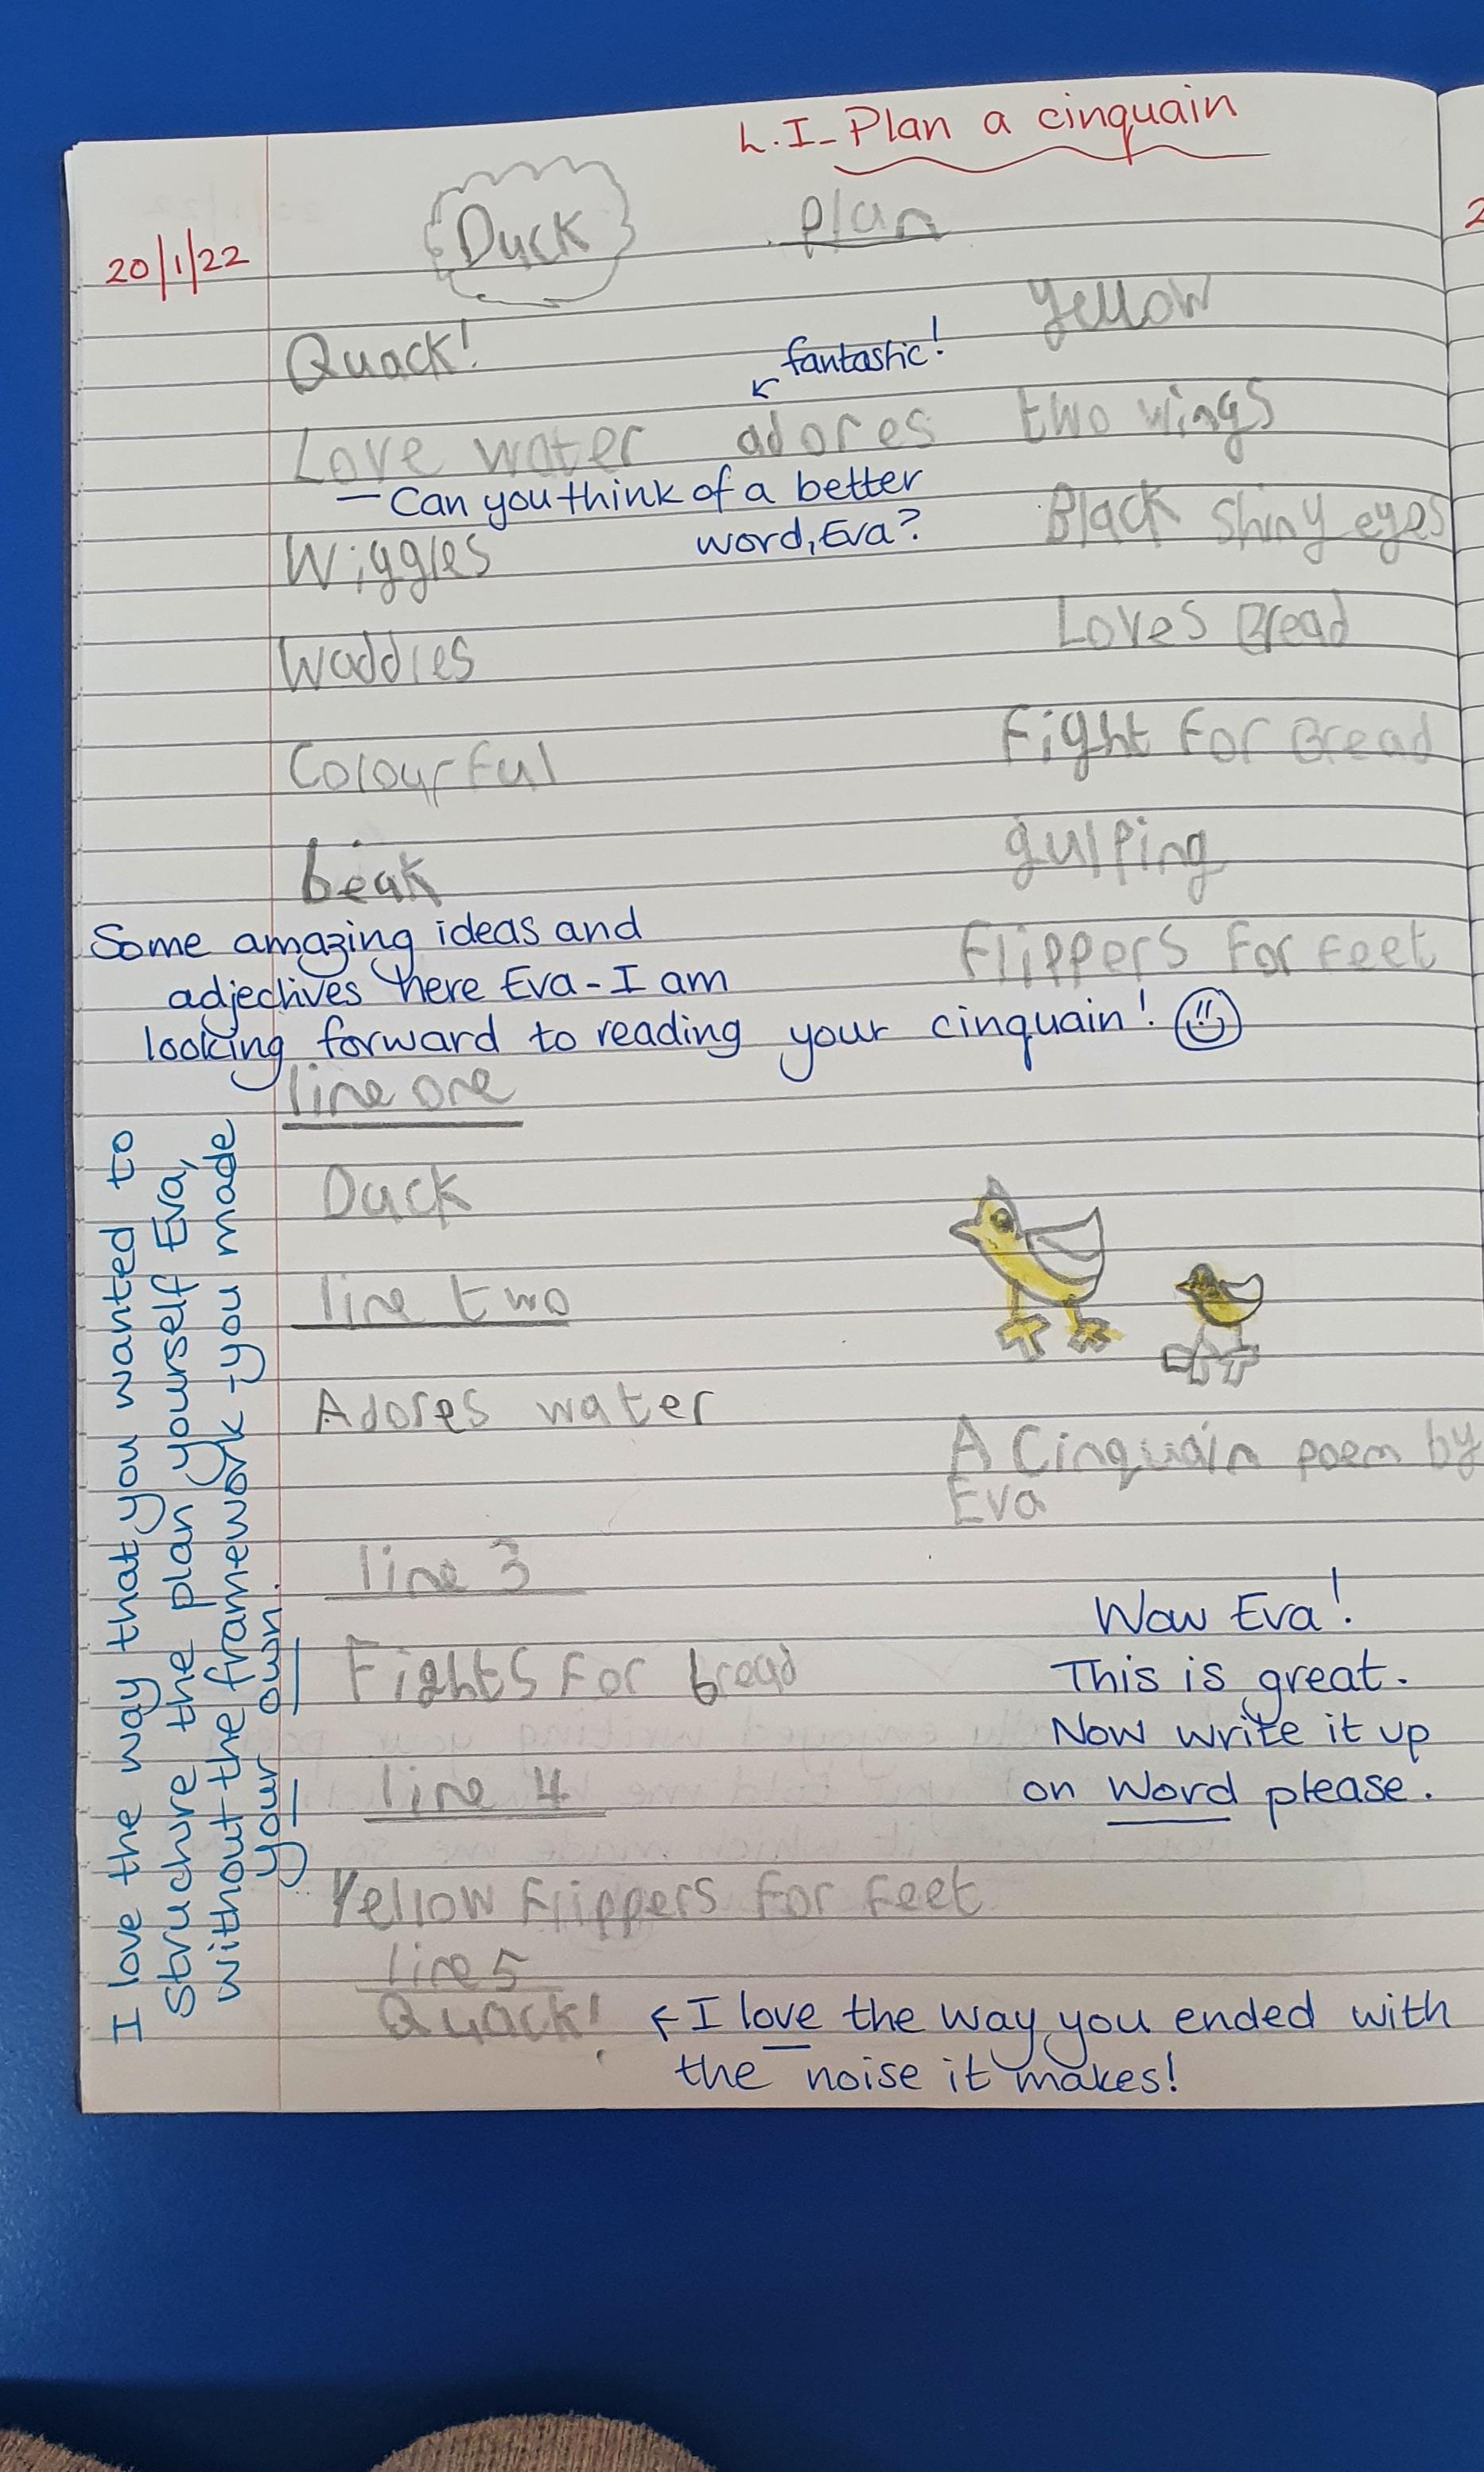 L.I - Plan a cinquain
Duck
plan
20/1/22
Yellow
Quack!
fantastic!
Love water adores two wings
- Can you think of a better
word, Eva?
Black shiny eyes
Wiggles
Loves Bread
Waddles
Fight For Bread
Colourful
gulping
beak
Flippers For Feet
Some amazing ideas and
adjectives here Eva - I am
looking forward to reading your cinquain!
line one
Duck
line two
Adores water
A Cinquain poem by
Eva
line 3
Fights For bread
Wow Eva!
This is great.
Now write it up
on Word please.
line 4
Yellow Flippers For Feet
line 5
Quack!
I love the way you ended with
the noise it makes!
I love the way that you wanted to
structure the plan yourself Eva,
without the framework - you made
your own.